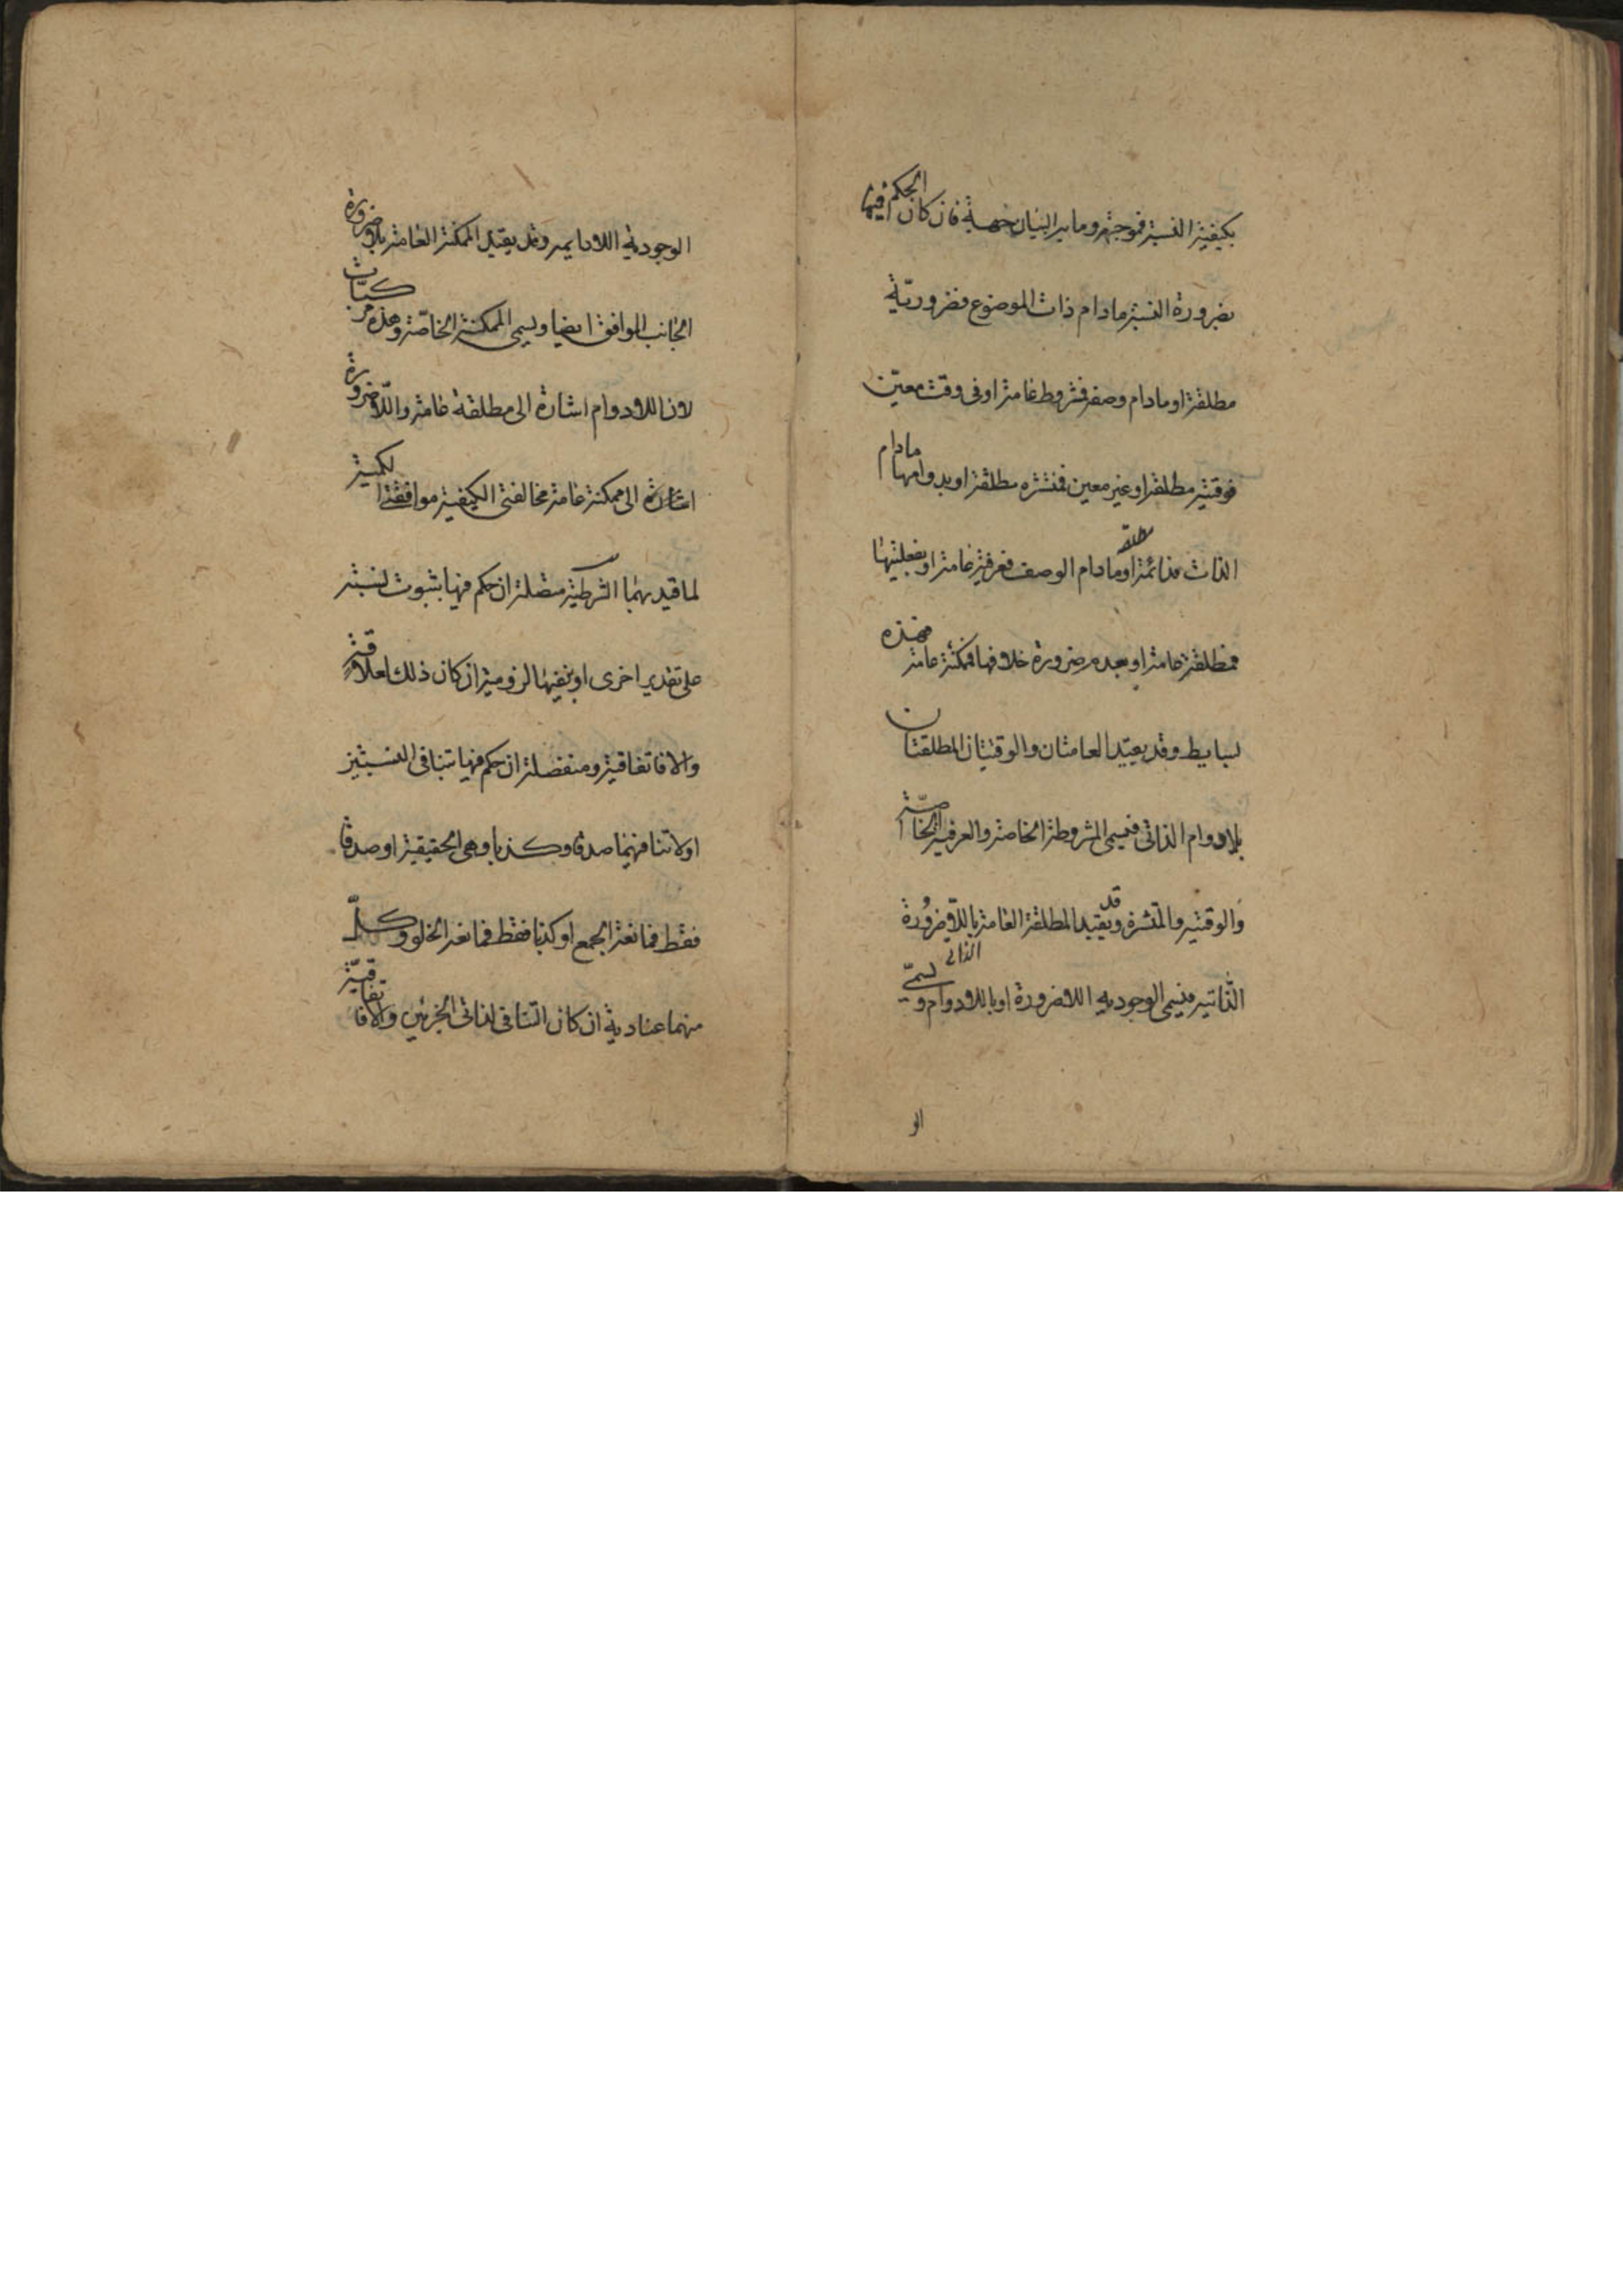 بكيفية النسبة فموجهة وما به البيان جهة فان كان الحكم فيها
بضرورة النسبة مادام ذات الموضوع فضروريّة
مطلقة او مادام وصفه فمشروطة عامة او فى وقت معيّن
فوقتية مطلقة او غير معين فمنتشره مطلقة او بدوامها مادام
الذات فدائمة مطلقة او مادام الوصف فعرفية عامة او بفعليتها
فمطلقة عامة او بعدم ضرورة خلافها فممكنة عامة فهذه
بسايط وقد يقيد العامتان والوقتيتان المطلقتان
بلادوام الذاتى فيسمى المشروطة الخاصة والعرفية الخاصّة
والوقتيه والمنتشرة وقد يقيد المطلقة العامة باللاضرورة
الذاتيه فيسمى الوجوديه اللاضرورة او باللادوام الذاتى ويسمّى
الو
الوجودية اللادايمه وقد يقيد الممكنة العامة بلاضرورة
الجانب الموافق ايضا ويسمى الممكنة الخاصّة وهذه مركبّات
لان اللادوام اشارة الى مطلقة عامة واللّاضرورة
اشارة الى ممكنة عامة مخالفتى الكيفية موافقتى الكمية
لما قيد بهما الشرطية متصلة ان حكم فيها بثبوت نسبة
على تقدير اخرى او نفيها لزومية ان كان ذلك لعلاقة
والا فاتفاقية ومنفصلة ان حكم فيها بتنافى النسبتين
او لا تنافيهما صدقا وكذبا وهى الحقيقية او صدقا
فقط فمانعة الجمع او كذبا فقط فمانعة الخلو وكلّ
منهما عنادية ان كان التنافى لذاتى الجزئين والا فاتفاقيّة